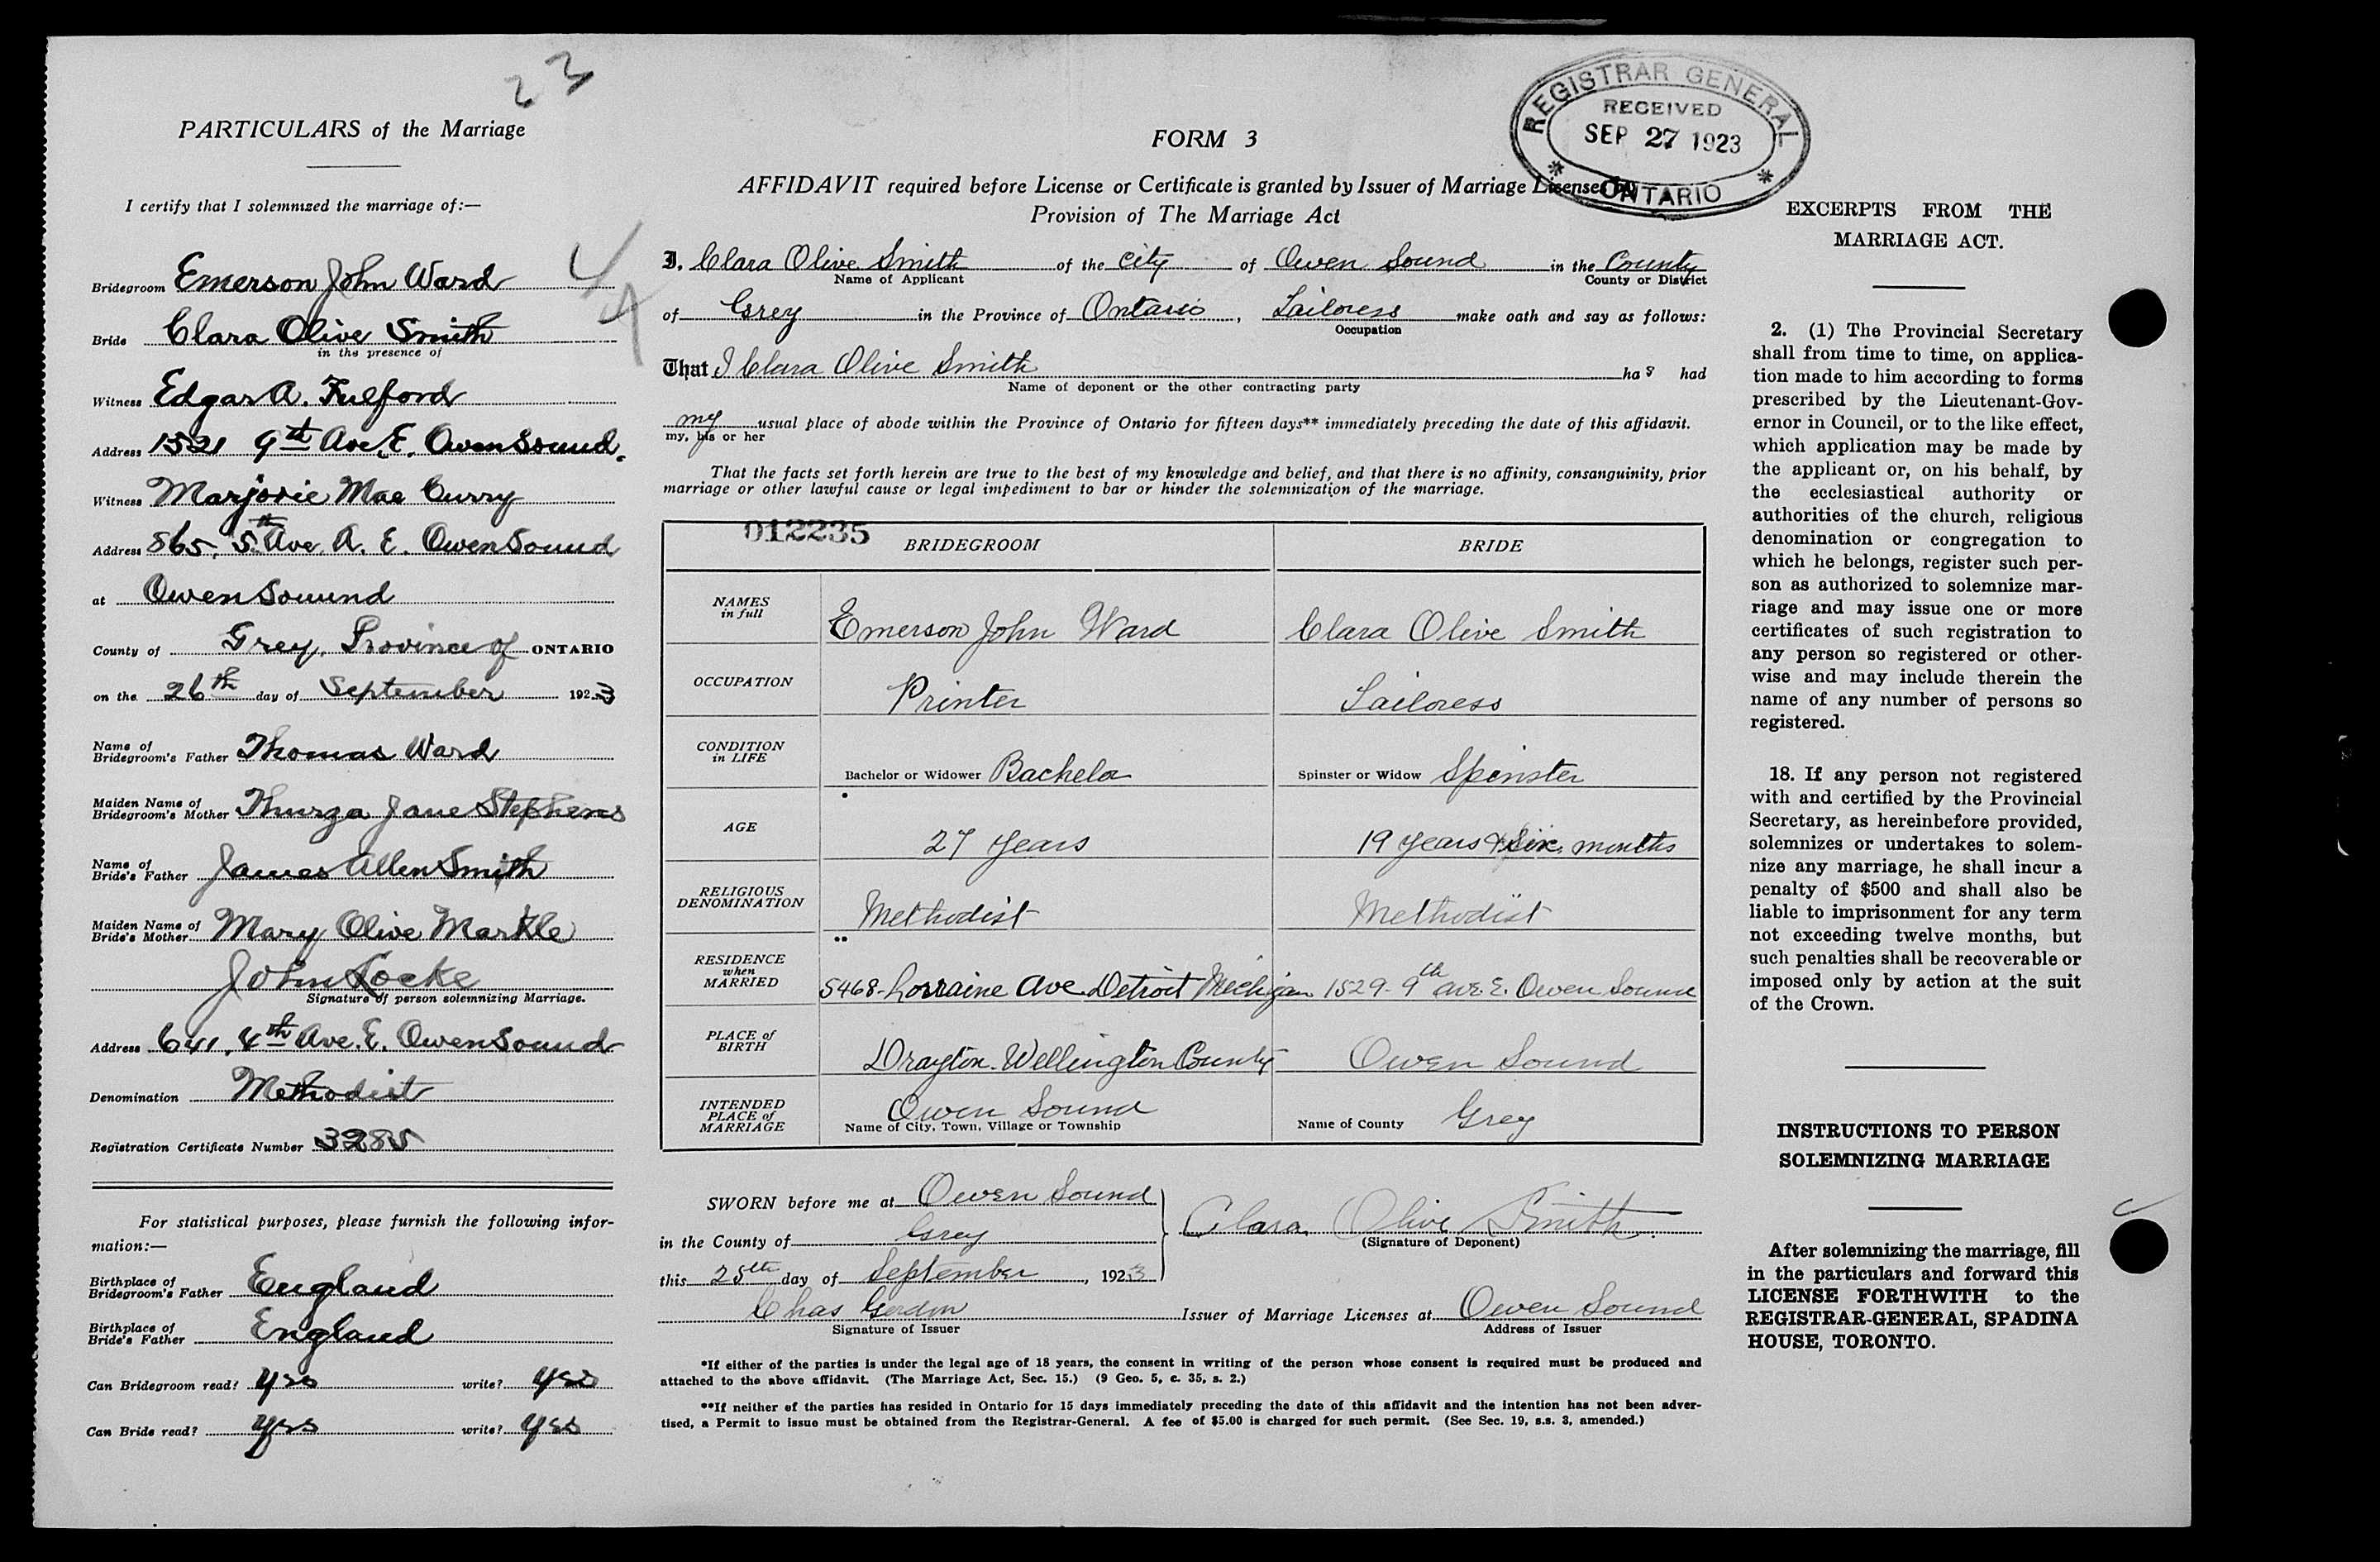 23
PARTICULARS of the Marriage
I certify that I solemnized the marriage of:—
Bridegroom Emerson John Ward
Bride Clara Olive Smith
in the presence of
Witness Edgar A. Fulford
Address 1521 9th Ave. E. Owen Sound.
Witness Marjorie Mae Curry
Address 865, 5th Ave. A. E. Owen Sound
at Owen Sound
County of Grey, Province of ONTARIO
on the 26th day of September 1923
Name of
Bridegroom's Father Thomas Ward
Maiden Name of
Bridegroom's Mother Thurza Jane Stephens
Name of
Bride's Father James Allen Smith
Maiden Name of
Bride's Mother Mary Olive Markle
John Locke
Signature of person solemnizing Marriage.
Address 641, 4th Ave. E. Owen Sound
Denomination Methodist
Registration Certificate Number 3285
For statistical purposes, please furnish the following infor-
mation:—
Birthplace of
Bridegroom's Father England
Birthplace of
Bride's Father England
Can Bridegroom read? yes write? yes
Can Bride read? yes write? yes
FORM 3
REGISTRAR GENERAL
RECEIVED
SEP 27 1923
* ONTARIO *
AFFIDAVIT required before License or Certificate is granted by Issuer of Marriage Licenses by
Provision of The Marriage Act
I, Clara Olive Smith of the city of Owen Sound in the County
Name of Applicant County or District
of Grey in the Province of Ontario, Tailoress make oath and say as follows:
Occupation
That I Clara Olive Smith has had
Name of deponent or the other contracting party
my usual place of abode within the Province of Ontario for fifteen days** immediately preceding the date of this affidavit.
my, his or her
That the facts set forth herein are true to the best of my knowledge and belief, and that there is no affinity, consanguinity, prior
marriage or other lawful cause or legal impediment to bar or hinder the solemnization of the marriage.
012235
BRIDEGROOM BRIDE
NAMES
in full Emerson John Ward Clara Olive Smith
OCCUPATION Printer Tailoress
CONDITION
in LIFE Bachelor or Widower Bachelor Spinster or Widow Spinster
AGE 27 years 19 years & six months
RELIGIOUS
DENOMINATION Methodist Methodist
RESIDENCE
when
MARRIED 5468-Lorraine Ave Detroit Michigan 1529-9th ave E. Owen Sound
PLACE of
BIRTH Drayton-Wellington County Owen Sound
INTENDED
PLACE of
MARRIAGE Owen Sound Name of County Grey
Name of City, Town, Village or Township
SWORN before me at Owen Sound
in the County of Grey
this 25th day of September, 1923
Clara Olive Smith
(Signature of Deponent)
Chas Gordon Issuer of Marriage Licenses at Owen Sound
Signature of Issuer Address of Issuer
*If either of the parties is under the legal age of 18 years, the consent in writing of the person whose consent is required must be produced and
attached to the above affidavit. (The Marriage Act, Sec. 15.) (9 Geo. 5, c. 35, s. 2.)
**If neither of the parties has resided in Ontario for 15 days immediately preceding the date of this affidavit and the intention has not been adver-
tised, a Permit to issue must be obtained from the Registrar-General. A fee of $5.00 is charged for such permit. (See Sec. 19, s.s. 3, amended.)
EXCERPTS FROM THE
MARRIAGE ACT.
2. (1) The Provincial Secretary
shall from time to time, on applica-
tion made to him according to forms
prescribed by the Lieutenant-Gov-
ernor in Council, or to the like effect,
which application may be made by
the applicant or, on his behalf, by
the ecclesiastical authority or
authorities of the church, religious
denomination or congregation to
which he belongs, register such per-
son as authorized to solemnize mar-
riage and may issue one or more
certificates of such registration to
any person so registered or other-
wise and may include therein the
name of any number of persons so
registered.
18. If any person not registered
with and certified by the Provincial
Secretary, as hereinbefore provided,
solemnizes or undertakes to solem-
nize any marriage, he shall incur a
penalty of $500 and shall also be
liable to imprisonment for any term
not exceeding twelve months, but
such penalties shall be recoverable or
imposed only by action at the suit
of the Crown.
INSTRUCTIONS TO PERSON
SOLEMNIZING MARRIAGE
After solemnizing the marriage, fill
in the particulars and forward this
LICENSE FORTHWITH to the
REGISTRAR-GENERAL, SPADINA
HOUSE, TORONTO.